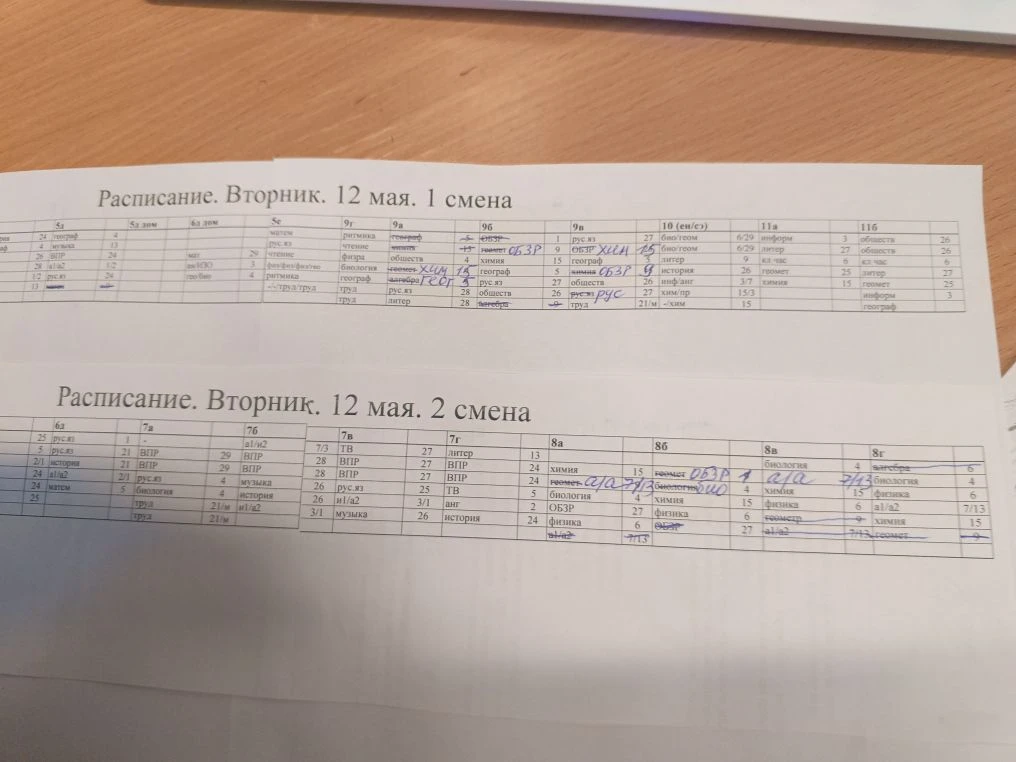 Расписание. Вторник. 12 мая. 1 смена
5д 5д дом 6д дом 5е 9г 9а 9б 9в 10 (ен/сэ) 11а 11б
24 географ 4 матем ритмика географ 5 ОБЗР 1 рус.яз 27 био/геом 6/29 информ 3 обществ 26
4 музыка 13 рус.яз чтение химия 15 геомет ОБЗР 9 ОБЗР ХИМ 15 био/геом 6/29 литер 27 обществ 26
26 ВПР 24 мат 29 чтение физра обществ 4 химия 15 географ 3 литер 9 кл.час 6 кл.час 6
28 а1/а2 1/2 ан/ИЗО 3 физ/физ/физ/гео биология геомет ХИМ 15 географ 5 химия ОБЗР 9 история 26 геомет 25 литер 27
1/2 рус.яз 24 гео/био 4 ритмика географ алгебра ГЕОГ 5 рус.яз 27 обществ 26 инф/анг 3/7 химия 15 геомет 25
13 матем 9 -/-/труд/труд труд рус.яз 28 обществ 26 рус.яз рус 27 хим/пр 15/3 информ 3
труд литер 28 алгебра 9 труд 21/м -/хим 15 географ
Расписание. Вторник. 12 мая. 2 смена
6д 7а 7б 7в 7г 8а 8б 8в 8г
25 рус.яз 1 - а1/и2 7/3 ТВ 27 литер 13 биология 4 алгебра 6
5 рус.яз 21 ВПР 29 ВПР 28 ВПР 27 ВПР 24 химия 15 геомет ОБЗР 1 а/а 7/13 биология 4
2/1 история 21 ВПР 29 ВПР 28 ВПР 27 ВПР 24 геомет а/а 7/13 биология био 4 химия 15 физика 6
24 а1/а2 2/1 рус.яз 4 музыка 26 рус.яз 25 ТВ 5 биология 4 химия 15 физика 6 а1/а2 7/13
24 матем 5 биология 4 история 26 и1/а2 3/1 анг 2 ОБЗР 27 физика 6 геометр 9 химия 15
25 труд 21/м и1/а2 3/1 музыка 26 история 24 физика 6 ОБЗР 27 а1/а2 7/13 геомет 9
труд 21/м а1/а2 7/13